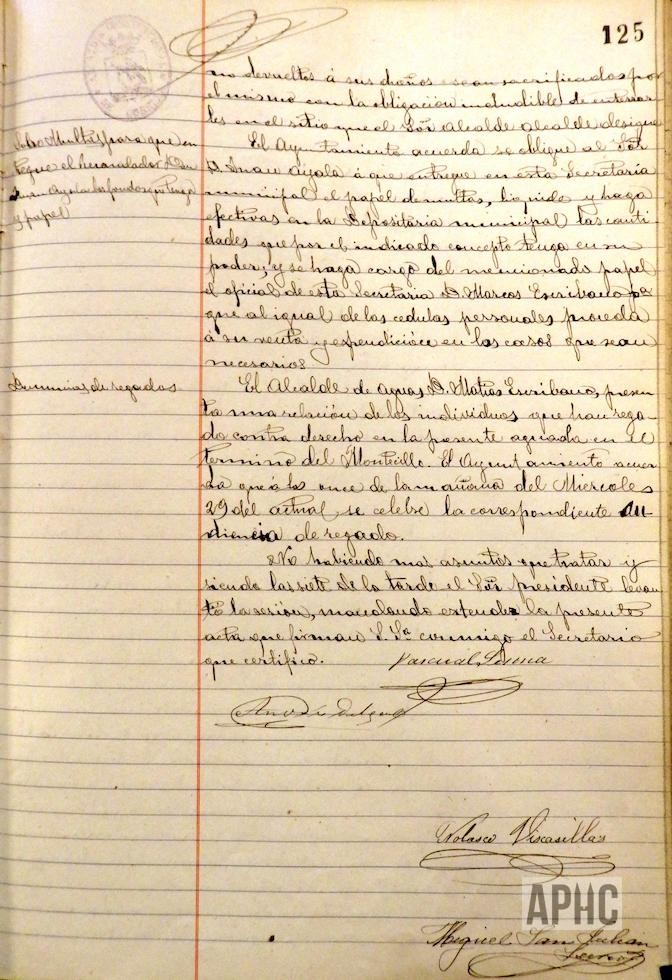 125
no devueltos á sus dueños sean sacrificados por
el mismo con la obligación includible de enterrar
les en el sitio que el Sõr Alcalde Alcalde designe
Sobre Multas para que en
tregue el Recaudador D.
Juan Ayala los fondos que tenga
y papel
El Ayuntamiento acuerda se obligue al Sõr
D. Juan Ayala á que entregue en esta Secretaria
municipal el papel de multas, liquide y haga
efectivas en la Depositaria municipal las canti
dades que por el indicado concepto tenga en su
poder; y se haga cargo del mencionado papel
el oficial de esta Secretaria D. Marcos Escribano pa
que al igual de las cedulas personales proceda
á su venta y expendición en los casos que sean
necesarios
Denuncias de regados
El Alcalde de Aguas D. Matias Escribano, presen
ta una relación de los individuos que han rega-
do contra derecho en la presente aguada en el
termino del Montecillo. El Ayuntamiento acuer
da que á las once de la mañana del Miercoles
29 del actual se celebre la correspondiente Au-
diencia de regado.
No habiendo mas asuntos que tratar y
siendo las siete de la tarde el Sõr presidente levan
tó la sesión, mandando extender la presente
acta que firman S. Sª conmigo el Secretario
que certifico.
Pascual Senna
Nolasco Viscasillas
APHC
Miguel San Julian